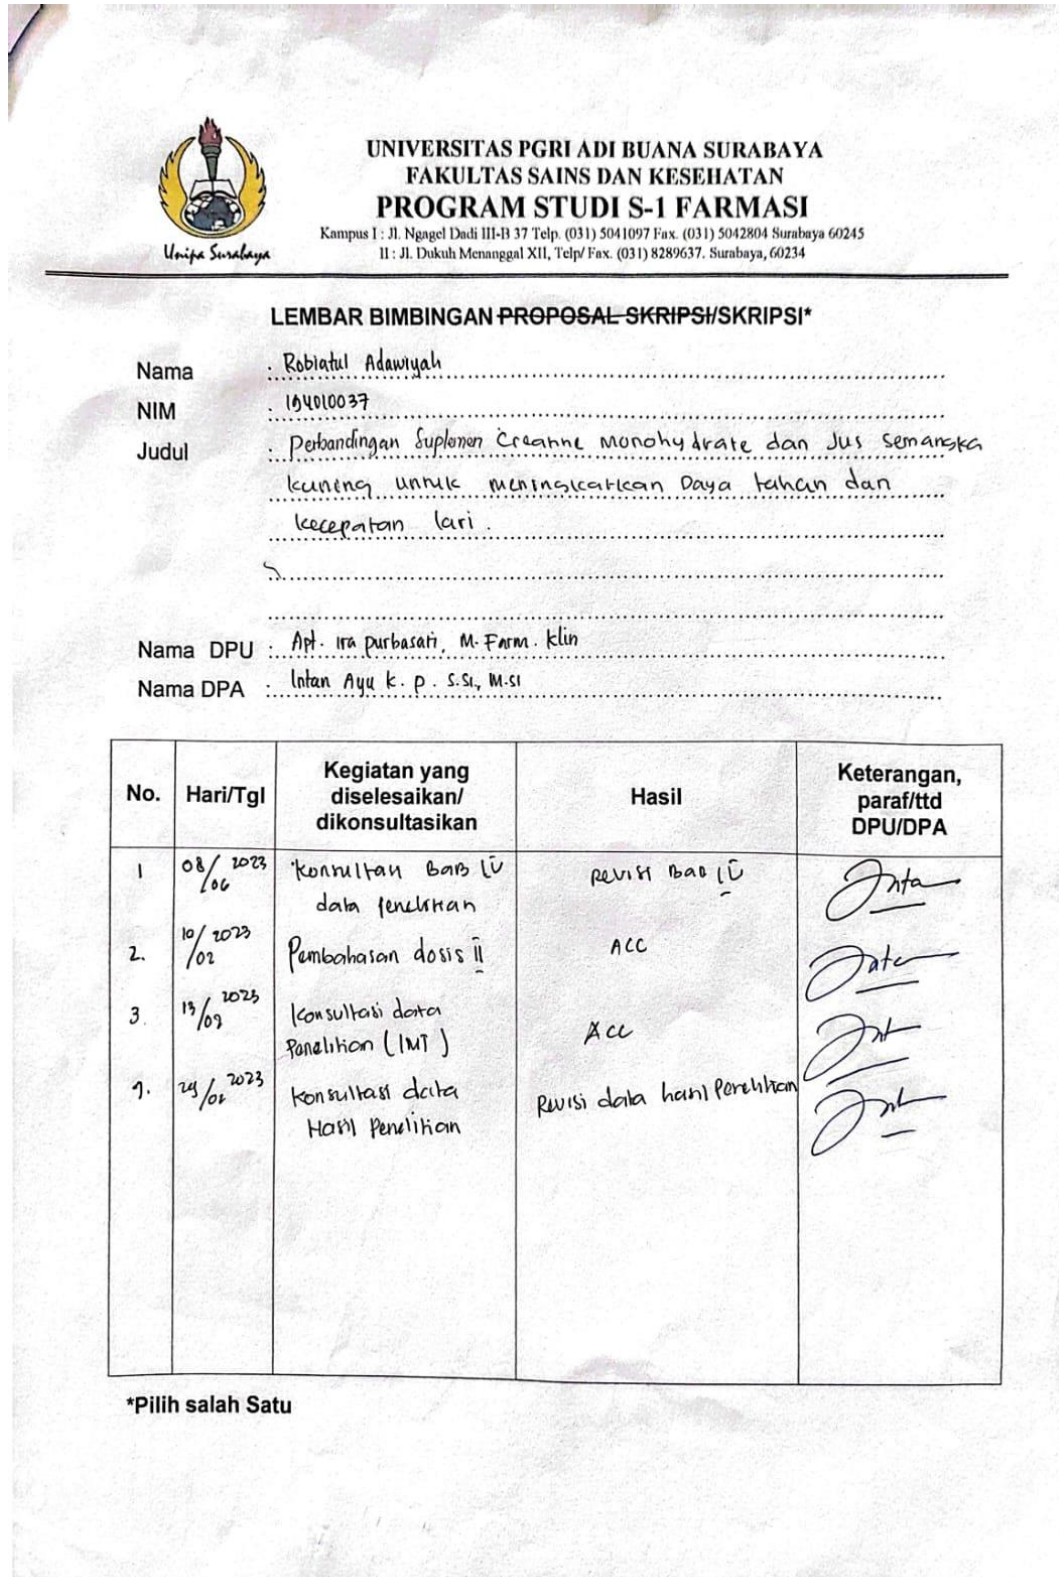 UNIVERSITAS PGRI ADI BUANA SURABAYA
FAKULTAS SAINS DAN KESEHATAN
PROGRAM STUDI S-1 FARMASI
Kampus I : Jl. Ngagel Dadi III-B 37 Telp. (031) 5041097 Fax. (031) 5042804 Surabaya 60245
II : Jl. Dukuh Menanggal XII, Telp/ Fax. (031) 8289637. Surabaya, 60234
Unipa Surabaya
LEMBAR BIMBINGAN PROPOSAL SKRIPSI/SKRIPSI*
Nama : Robiatul Adawiyah
NIM : 194010037
Judul : Perbandingan Suplemen Creatine Monohydrate dan Jus Semangka
kuning untuk meningkatkan Daya tahan dan
kecepatan lari.
Nama DPU : Apt. Ira purbasari, M. Farm. klin
Nama DPA : Intan Ayu k. p. S.Si., M.Si
No.
Hari/Tgl
Kegiatan yang
diselesaikan/
dikonsultasikan
Hasil
Keterangan,
paraf/ttd
DPU/DPA
1 08/06 2023 BAB IV Revisi Bab IV
data penelitian
2. 10/ 2023 Pembahasan dosis II ACC
3. 13/ 2023 Konsultasi data ACC
Penelitian (IMT)
2023 Konsultasi data Revisi data hasil Penelitian
Hasil Penelitian
*Pilih salah Satu